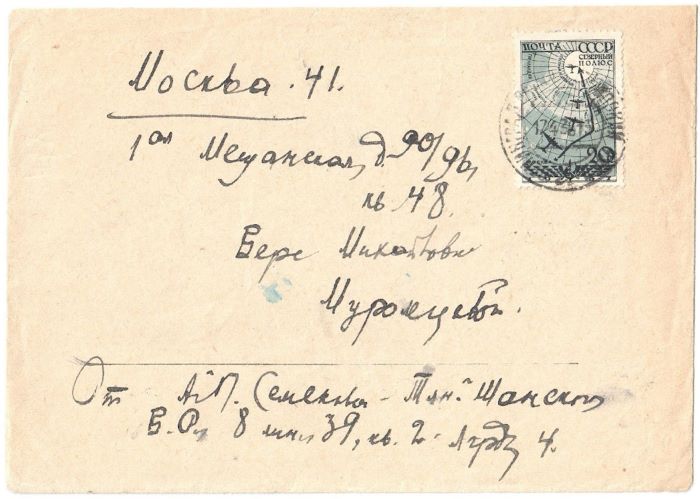 ПОЧТА СССР
СЕВЕРНЫЙ
ПОЛЮС
20
Москва 41.
1ая Мещанская, д. 90/96,
кв 48.
Вере
Муромцевой.
От А. П. Семенова-Тян-Шанской
В.О. 8 лин 39, кв. 2